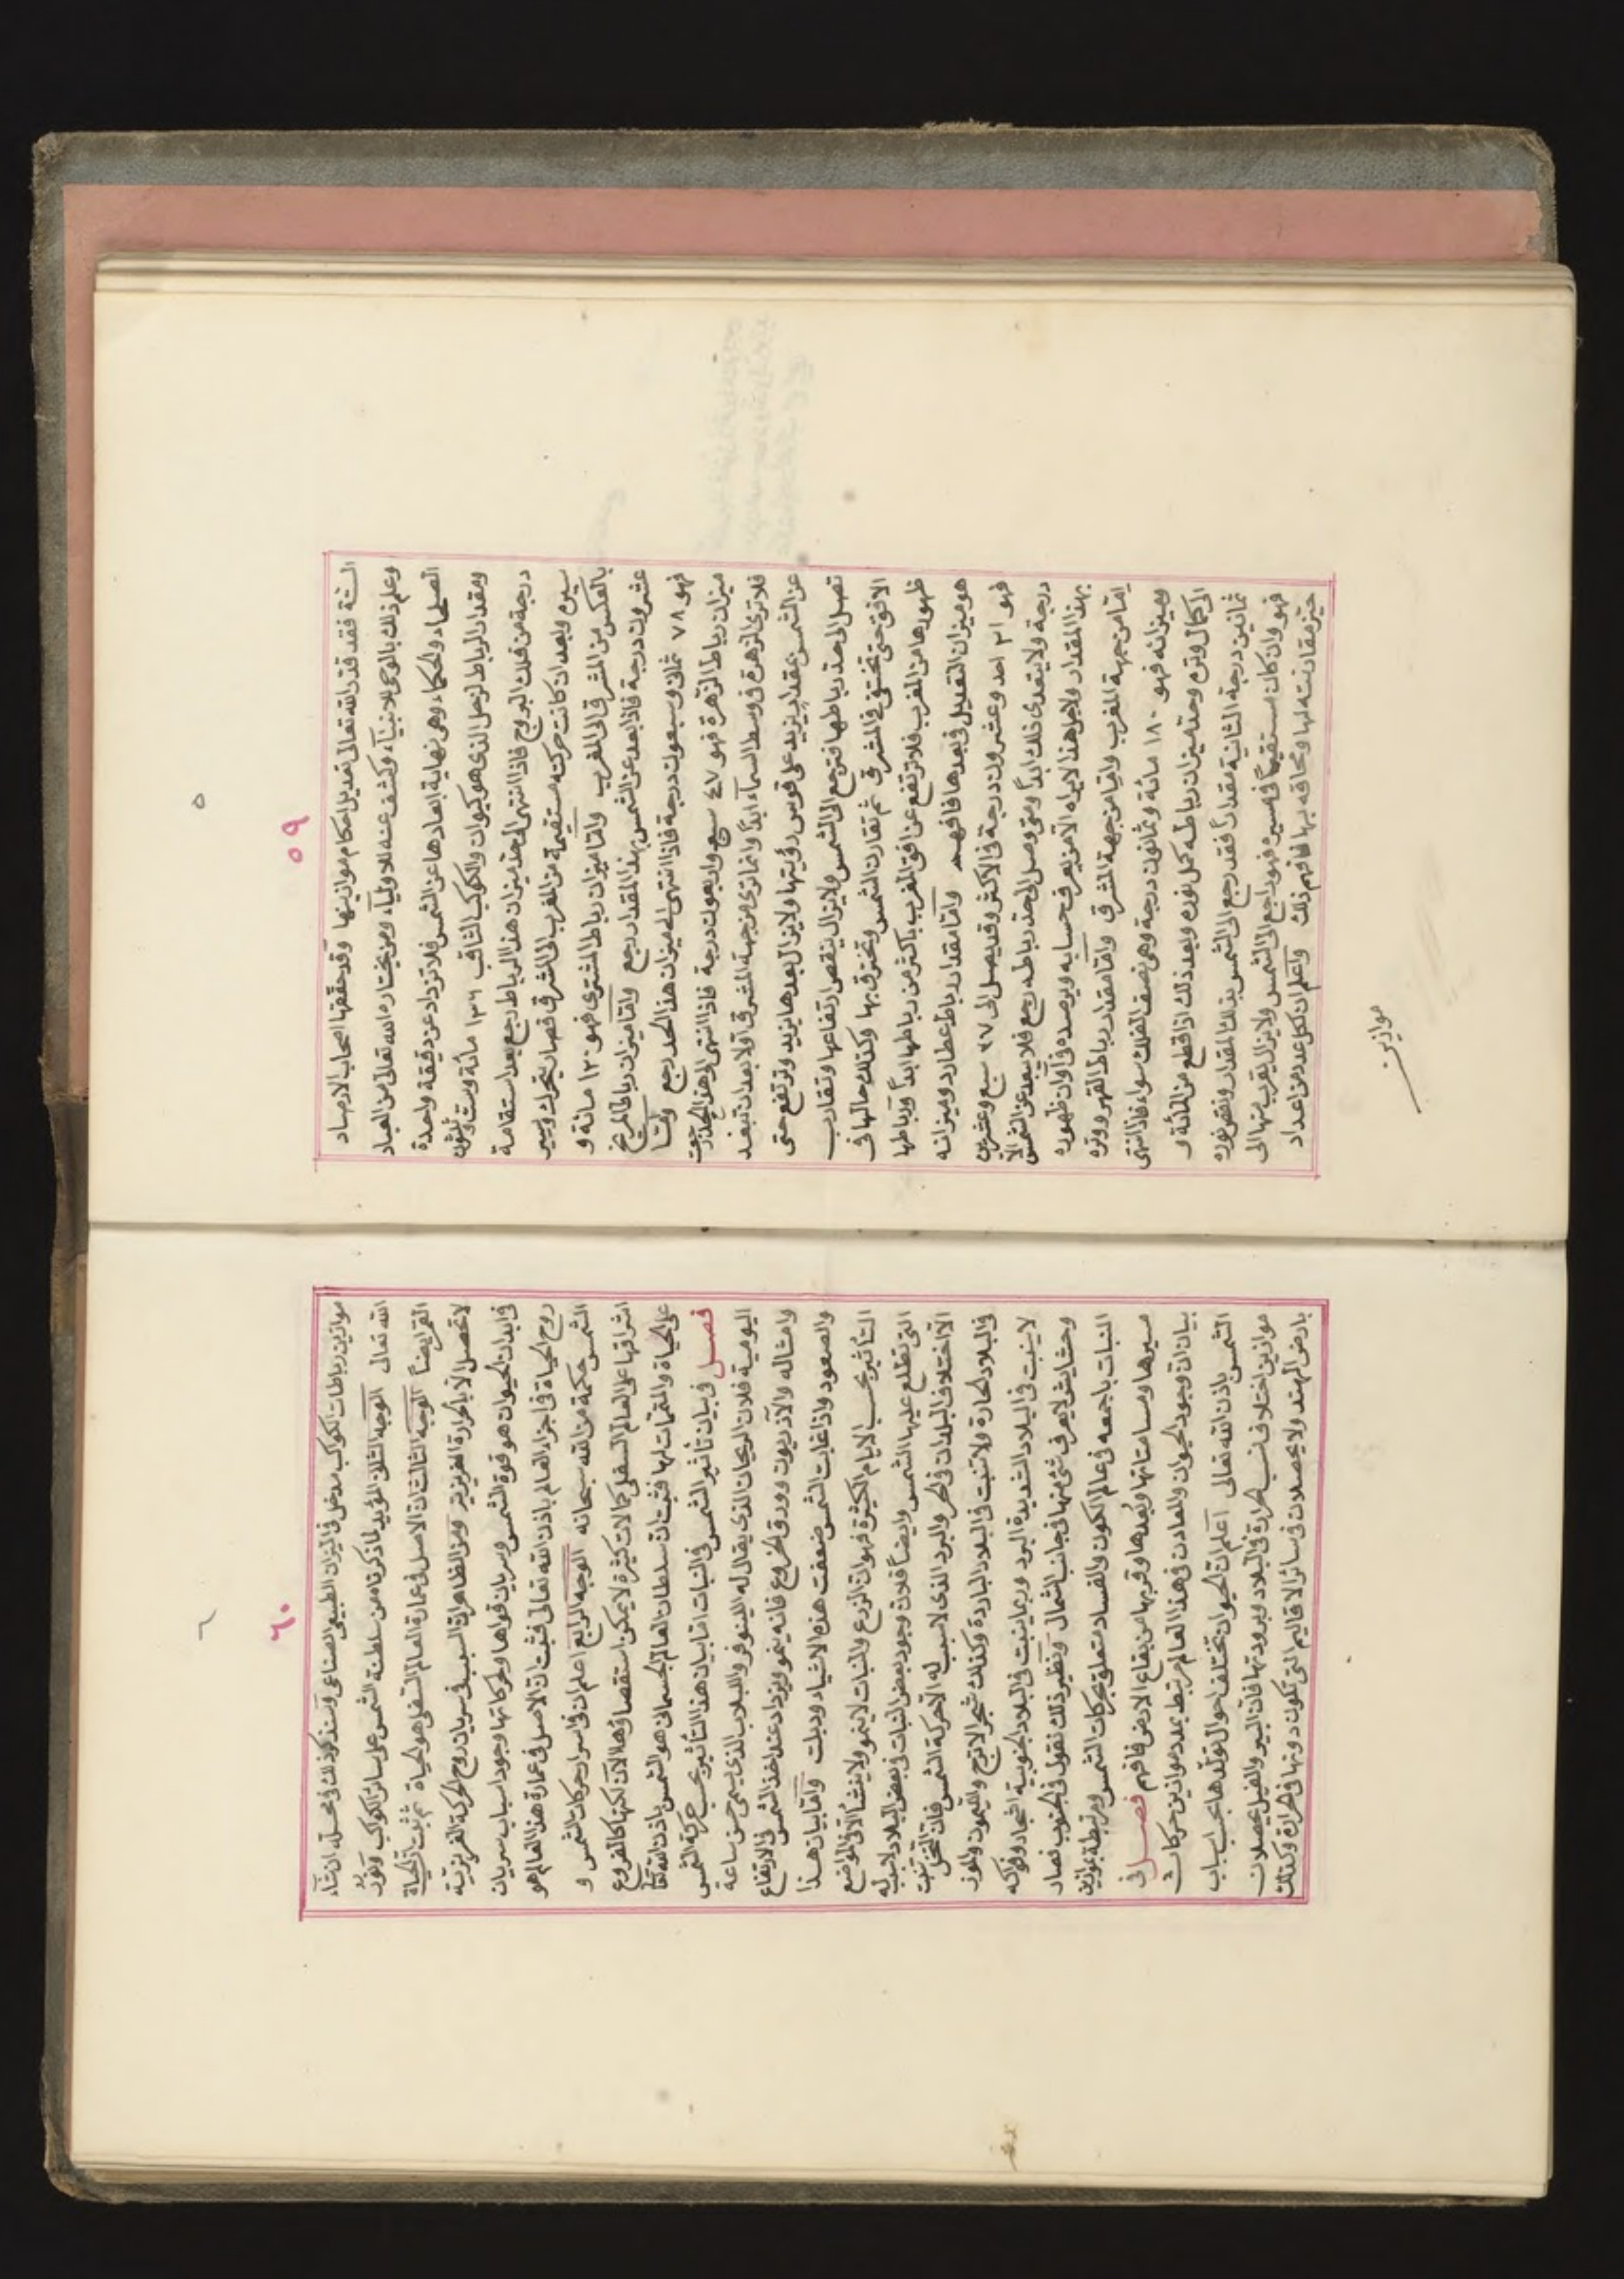 ٥
٥٩
الستة فقد قدر الله تعالى تعديل احكام موازينها وقد حققها اصحاب الارصاد
وعلم ذلك بالوحى للانبيآء وكشف عنه للاوليآء ومن يختاره الله تعالى من العباد
الصلحاء والحكماء وهى نهاية ابعادها عن الشمس فلا تزداد عن دقيقة واحدة
ومقدار الرباط لزحل الذى هو كيوان والكوكب الثاقب ١٣٦ مائة وست وثلثون
درجة من فلك البروج فاذا انتهى الى حد ميزان هذا الرباط رجع بعد استقامة
سيره وبعد ان كانت حركته مستقيمة من المغرب الى المشرق فصار يتحرك ويسير
بالعكس من المشرق الى المغرب واما ميزان رباط المشترى فهو ١٢٠ مائة و
عشرون درجة فاذا بعد عن الشمس بهذا المقدار رجع واما ميزان رباط المريخ
فهو ٧٨ ثمان وسبعون درجة فاذا انتهى الى ميزان هذا الحد رجع واما
ميزان رباط الزهرة فهو ٤٧ سبع واربعون درجة فاذا انتهى الى هذا الحد رجعت
فلا ترى الزهرة فى وسط السمآء ابداً وانما ترى من جهة المشرق اولا بعد ان تبعد
عن الشمس بمقدار يزيد على قوس رؤيتها ولا يزال بعدها يزيد وترتفع حتى
تصل الى حد رباطها فترجع الى الشمس ولا يزال ينقص ارتفاعها وتقارب
الافق حتى تختفى فى المشرق ثم تقارن الشمس وتحترق بها وكذلك حالها فى
ظهورها من المغرب فلا ترتفع عن افق المغرب باكثر من رباطها ابداً ورباطها
هو ميزان التعديل فى بعدها فافهم واما مقدار رباط عطارد وميزانه
فهو ٢١ احد وعشرون درجة فى الاكثر وقد يصل الى ٢٧ سبع وعشرين
درجة ولا يتعدى ذلك ابداً ومتى وصل الى حد رباطه رجع فلا يبعد عن الشمس الا
بهذا المقدار ولاجل هذا لا يراه الا من يعرف حسابه ويرصده فى اوان ظهوره
اما من جهة المغرب واما من جهة المشرق واما مقدار رباط القمر ووتره
وميزانه فهو ١٨٠ مائة وثمانون درجة وهى نصف الفلك سواء فاذا انتهى
الى كمال وتره وحد ميزان رباطه كمل نوره وبعد ذلك اذا قطع من المائة و
ثمانين درجة الثانية مقداراً فقد رجع الى الشمس بذلك المقدار ونقص نوره
فهو وان كان مستقيماً فى مسيره فهو راجع الى الشمس ولا يزال يقرب منها الى
حيز مقارنته لها ومحاقه بها فافهم ذلك واعلم ان لكل عدد من اعداد
موازين
٦
٦٠
موازين رباطات الكواكب مدخل فى الميزان الطبيعى الصناعى وسنذكر ذلك فى محله ان شآء
الله تعالى الوجه الثانى المؤيد لما ذكرنا من سلطنة الشمس على سائر الكواكب ونور
القمر ايضاً الوجه الثالث ان الاصل فى عمارة العالم السفلى هو الحياة ثم ثبت ان الحياة
لا تحصل الا بالحرارة الغريزية ومن الظاهر ان السبب فى سريان روح الحركة الغريزية
فى ابدان الحيوان هو قوة الشمس وسريان قواها وحركاتها وجود اسباب سريان
روح الحياة فى اجزاء العالم باذن الله تعالى فثبت ان الاصل فى عمارة هذا العالم هو
الشمس حكمة من الله سبحانه الوجه الرابع اعلم ان فى اسرار حركات الشمس و
اشراقها على العالم السفلى كمالات كثيرة لا يمكن استقصاؤها الان لكنها كالفروع
على الحياة والمتممات لها فثبت ان سلطان العالم الجسمانى هو الشمس باذن الله تعالى
فصل فى بيان تأثير الشمس فى النبات اما بيان هذا التأثير بحسب حركة الشمس
اليومية فلان الريحان الذى يقال له اللينوفر واللبلاب الذى يسمى حسن ساعة
وامثاله والآذريون وورق الخروع فانه ينمو ويزداد عند اخذ الشمس فى الارتفاع
والصعود واذا غابت الشمس ضعفت هذه الاشياء وذبلت واما بيان هذا
التأثير بحسب الايام الكثيرة فهو ان الزرع والنبات لا ينمو ولا ينشأ الا فى المواضع
التى تطلع عليها الشمس وايضاً فلان وجود بعض النبات فى بعض البلاد لا سبب له
الا اختلاف البلدان فى الحر والبرد الذى لا سبب له الا حركة الشمس فان النخل ينبت
فى البلاد الحارة ولا تنبت فى البلاد الباردة وكذلك شجر الاترج والليمون والموز
لا ينبت فى البلاد الشديدة البرد وربما ينبت فى البلاد الجنوبية اشجار وفواكه
وحشايش لا يعرف شئ منها فى جانب الشمال ونظير ذلك نقول فى الجنوب فصار
النبات باجمعه فى عالم الكون والفساد متعلق بحركات الشمس ومرتبطة بموازين
مسيرها ومسامتاتها وبُعدها وقربها من بقاع الارض فافهم فصل فى
بيان ان وجود الحيوان والمعادن فى هذا العالم مرتبط بعدد موازين حركات
الشمس باذن الله تعالى اعلم ان الحيوان تختلف احوال تولدها بحسب اسباب
موازين اختلاف نسب الحرارة فى البلاد وبرودتها فان الببر والفيل يحصلان
بارض الهند ولا يحصلان فى سائر الاقاليم التى تكون دونها فى الحرارة وكذلك